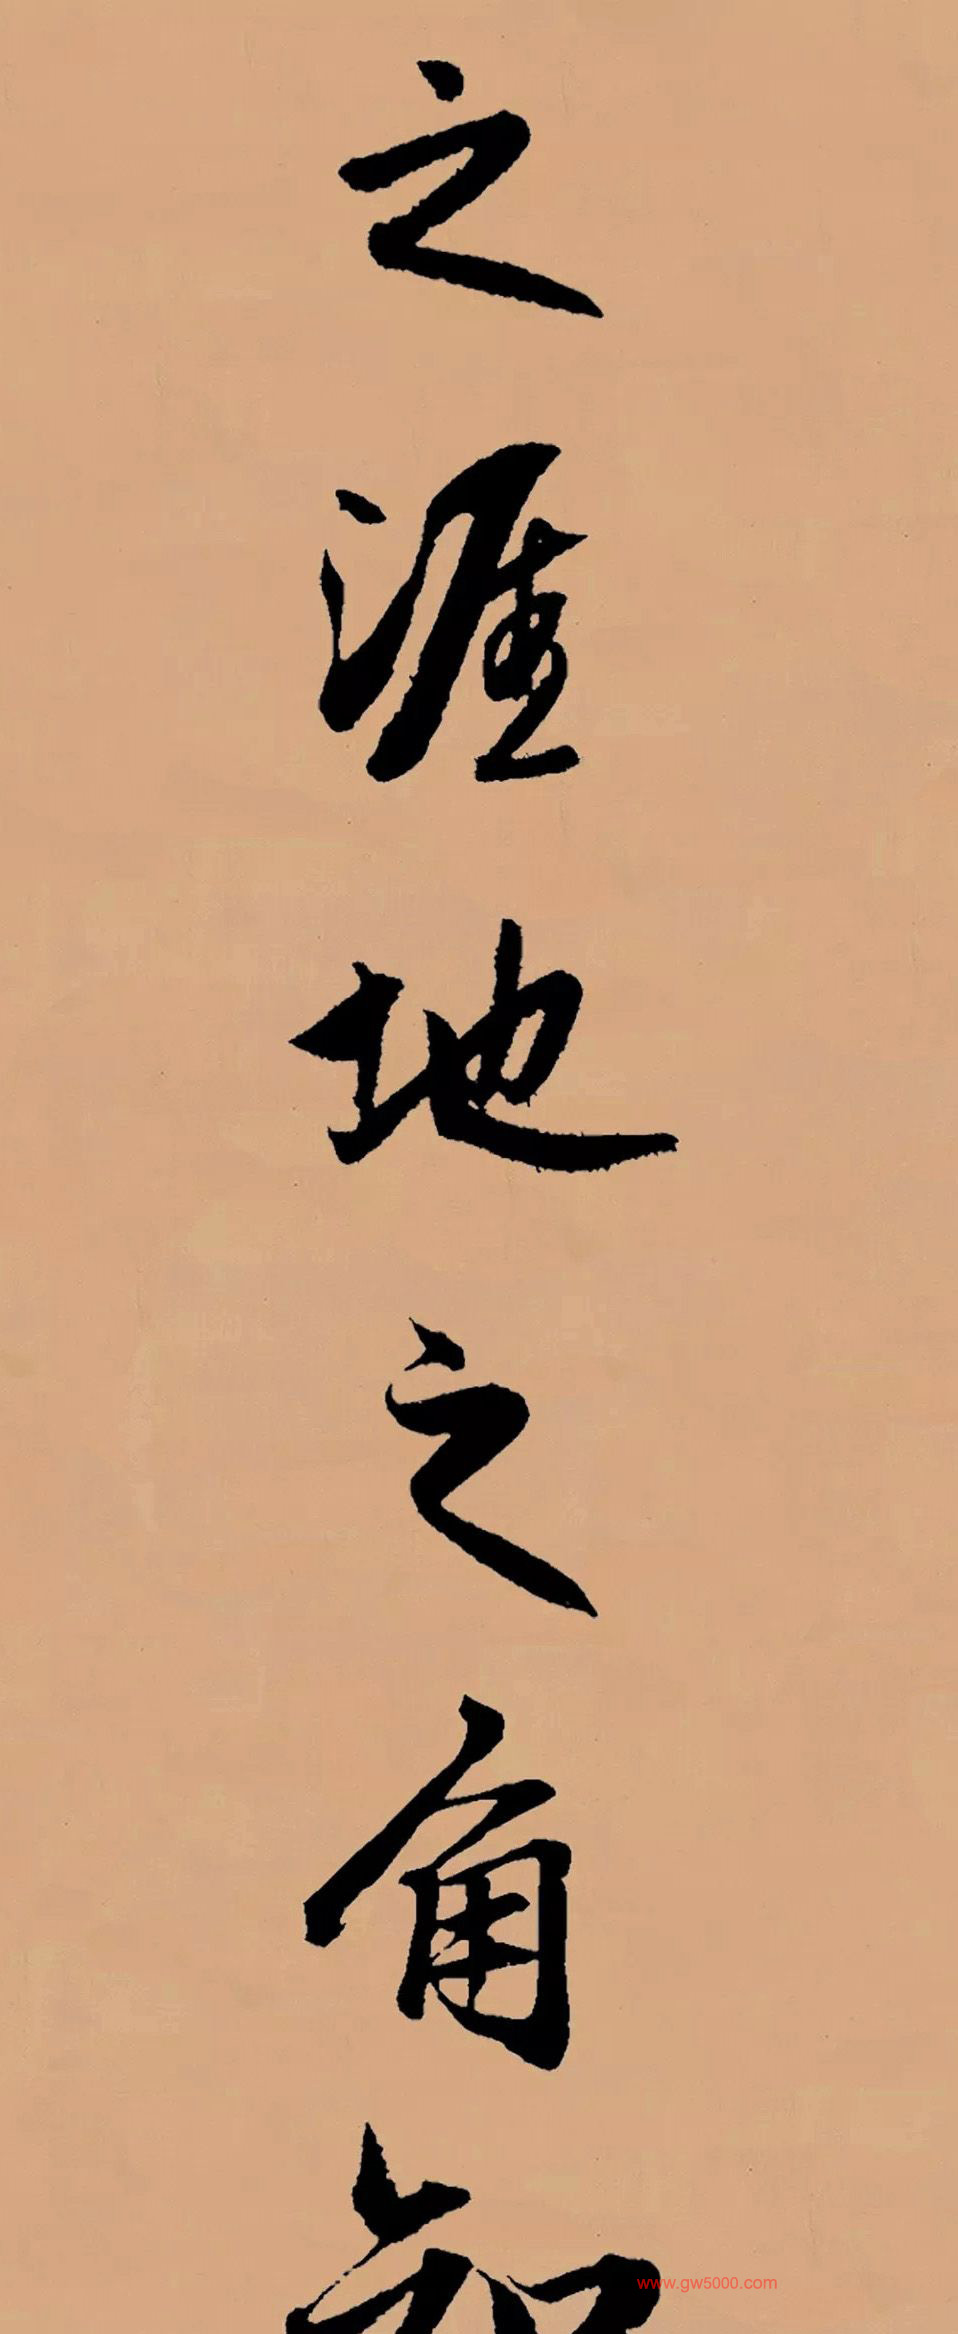 之涯地之角知
www.gw5000.com